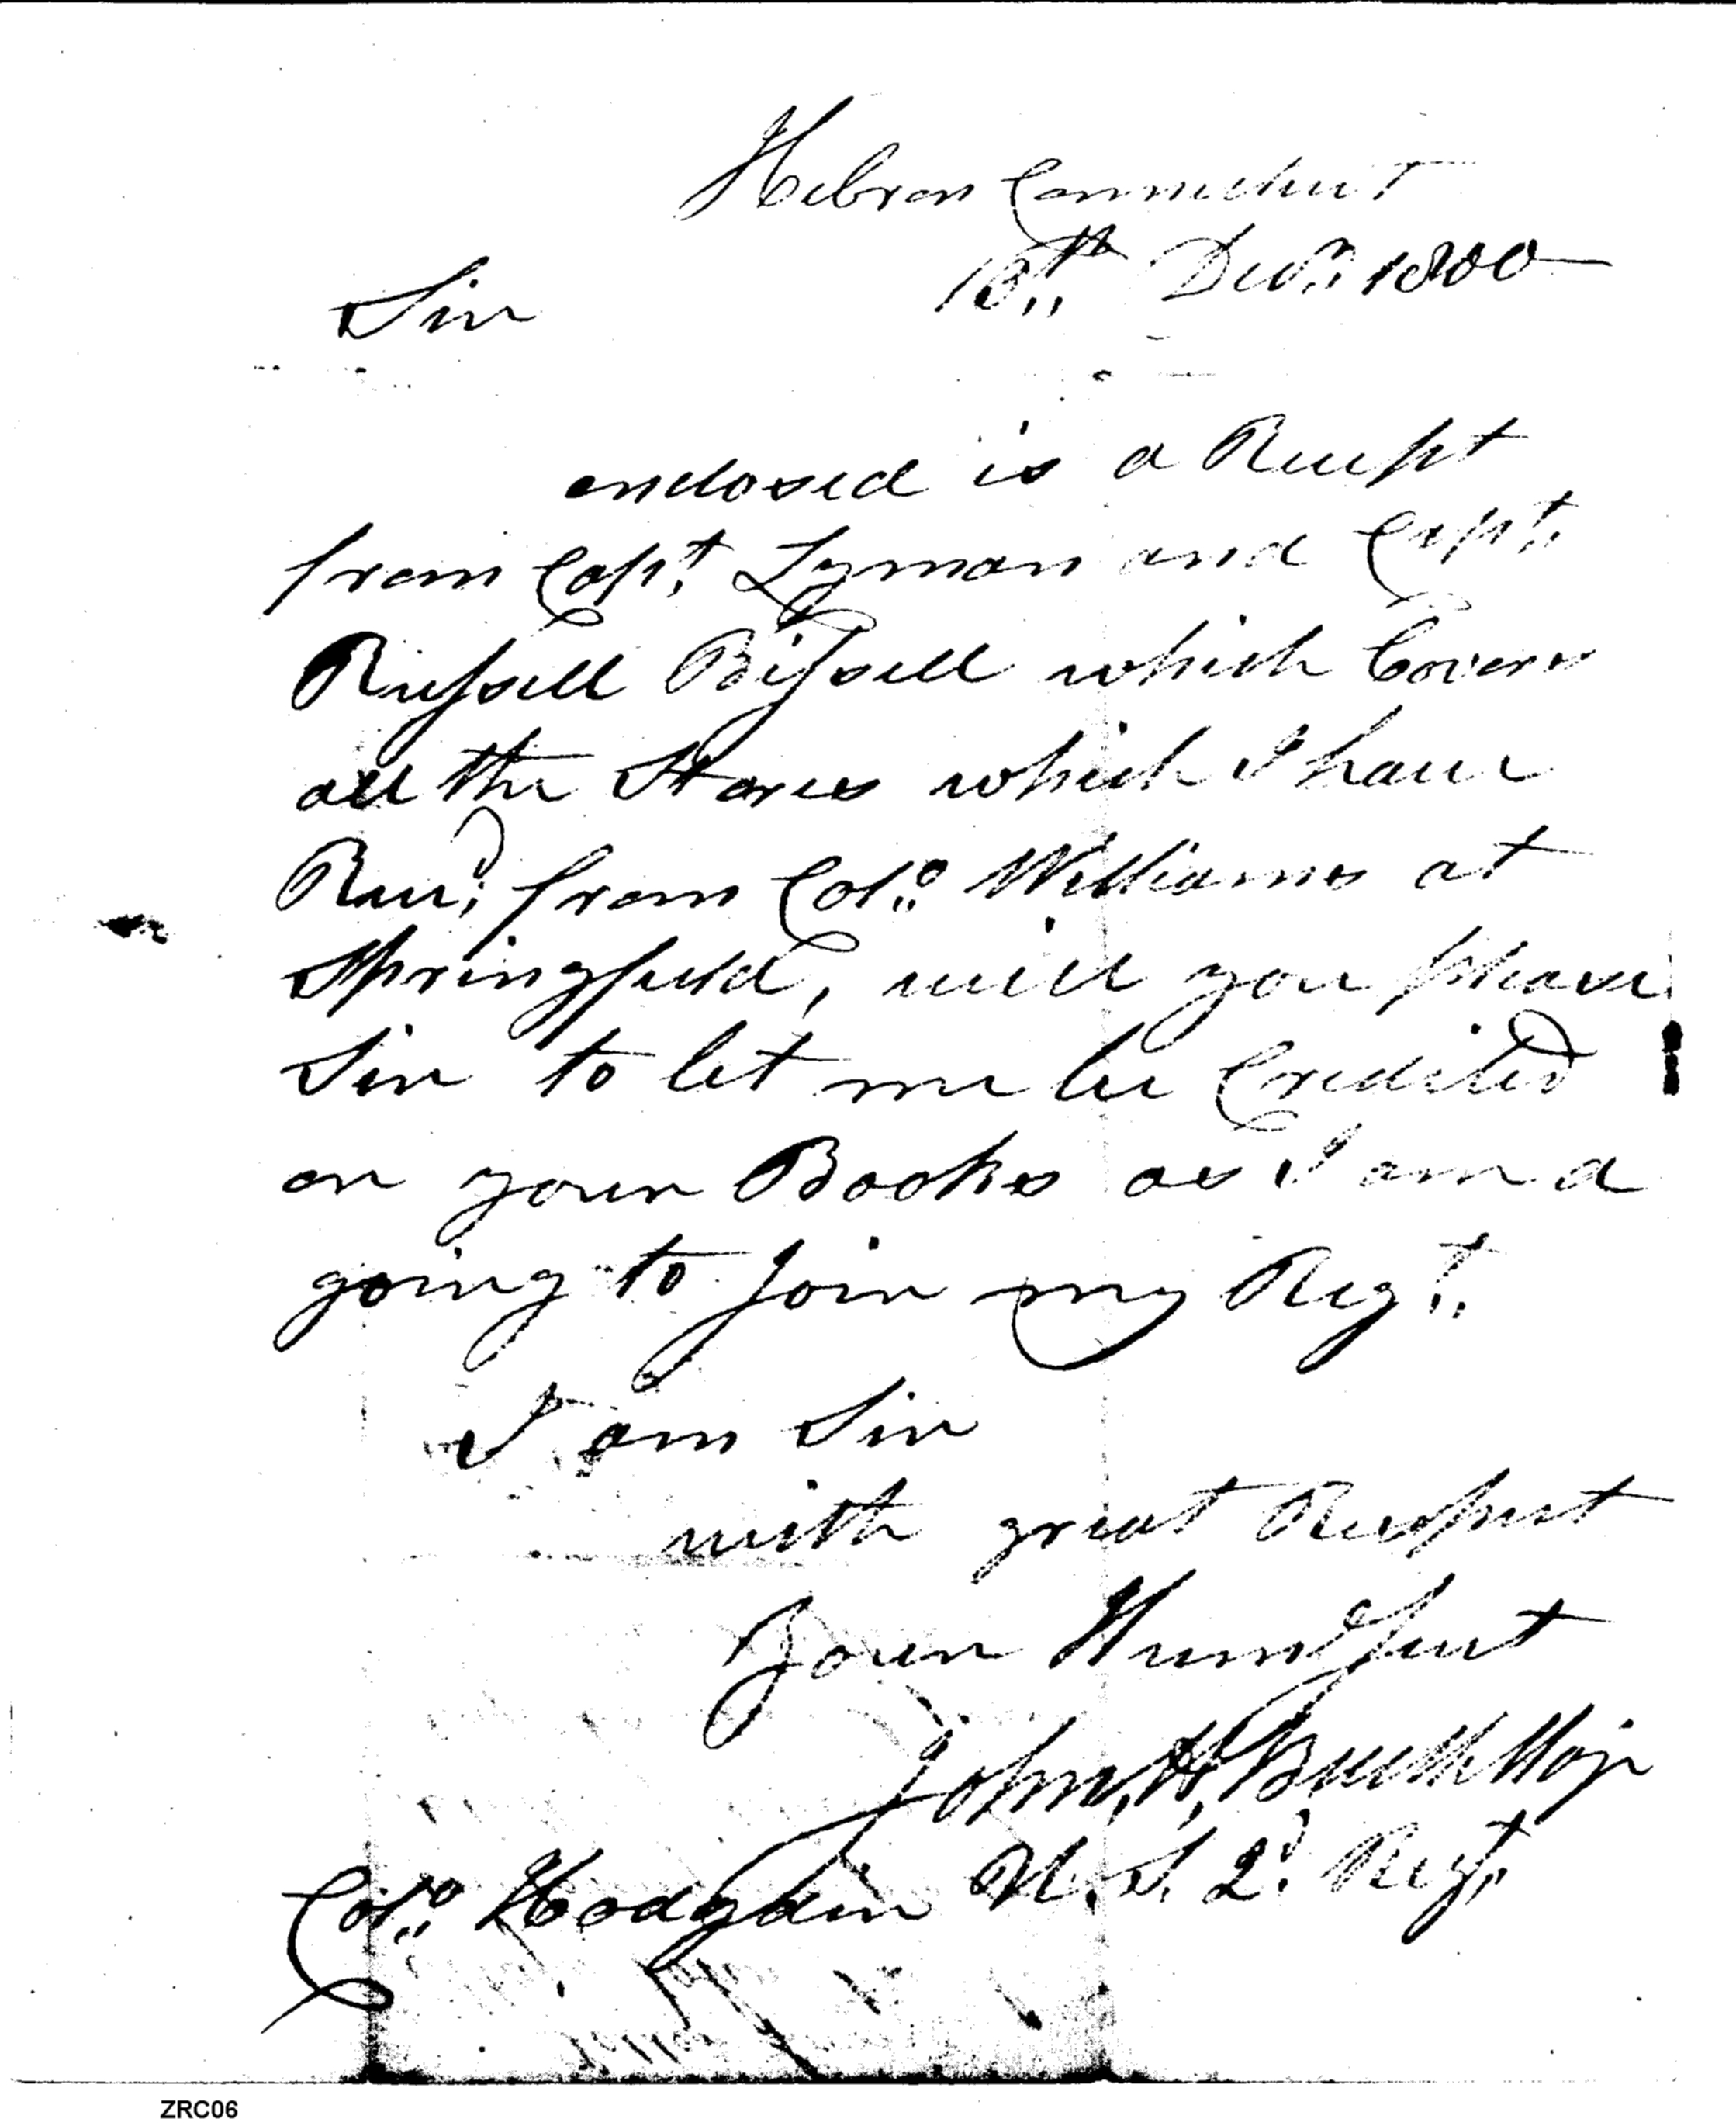 Hebron Connecticut
Sir 10th Decr. 1800
enclosed is a Receipt
from Capt. Lyman and Capt.
Russell Bissell which Covers
all the Stores which I have
Recd. from Colo. Williams at
Springfield, will you please
Sir to let me be Credited
on your Books as I am a
going to Join my Regt.
I am Sir
with great Respect
Your Humd Sert
John, H, Buell Majr
Colo. Hodgdon U. S. 2d. Regt.
ZRC06